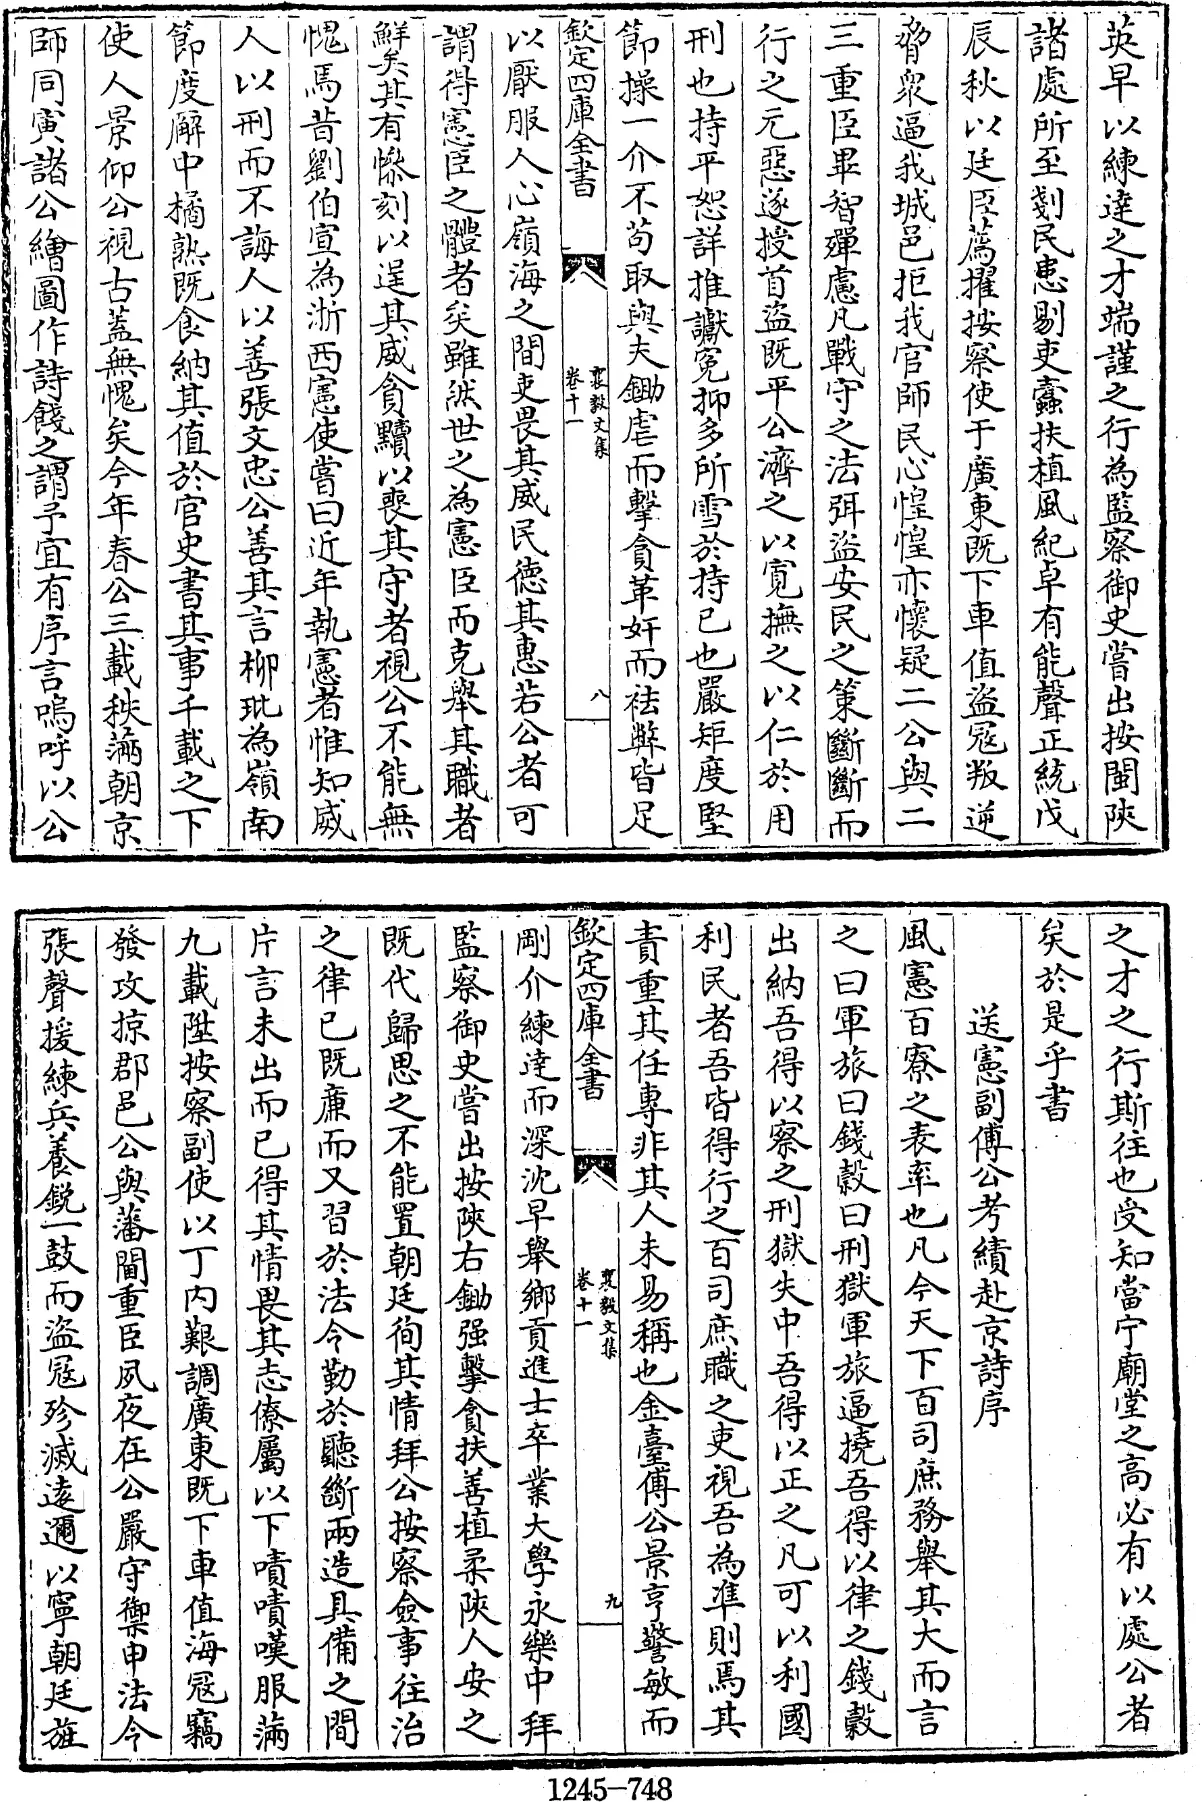 英早以練達之才端謹之行為監察御史嘗出按閩陜
諸處所至剗民患剔吏蠹扶植風紀卓有能聲正統戊
辰秋以廷臣薦擢按察使于廣東既下車值盗冦叛逆
脅衆逼我城邑拒我官師民心惶惶亦懷疑二公與二
三重臣畢智殫慮凡戰守之法弭盗安民之策斷斷而
行之元惡遂授首盗既平公濟之以寛撫之以仁於用
刑也持平恕詳推讞寃抑多所雪於持已也嚴矩度堅
節操一介不茍取與夫鋤虐而擊貪革奸而袪弊皆足
欽定四庫全書
襄毅文集
卷十一
八
以厭服人心嶺海之間吏畏其威民德其惠若公者可
謂得憲臣之體者矣雖然世之為憲臣而克舉其職者
鮮矣其有慘刻以逞其威貪黷以喪其守者視公不能無
愧焉昔劉伯宣為浙西憲使嘗曰近年執憲者惟知威
人以刑而不誨人以善張文忠公善其言柳玭為嶺南
節度廨中橘熟既食納其值於官史書其事千載之下
使人景仰公視古葢無愧矣今年春公三載秩滿朝京
師同寅諸公繪圖作詩餞之謂予宜有序言嗚呼以公
之才之行斯往也受知當宁廟堂之高必有以處公者
矣於是乎書
送憲副傅公考績赴京詩序
風憲百寮之表率也凡今天下百司庶務舉其大而言
之曰軍旅曰錢穀曰刑獄軍旅逼撓吾得以律之錢穀
出納吾得以察之刑獄失中吾得以正之凡可以利國
利民者吾皆得行之百司庶職之吏視吾為準則焉其
責重其任專非其人未易稱也金臺傅公景亨警敏而
欽定四庫全書
襄毅文集
卷十一
九
剛介練達而深沈早舉鄉貢進士卒業大學永樂中拜
監察御史嘗出按陜右鋤强擊貪扶善植柔陜人安之
既代歸思之不能置朝廷徇其情拜公按察僉事往治
之律已既亷而又習於法令勤於聽斷兩造具備之間
片言未出而已得其情畏其志僚屬以下嘖嘖嘆服滿
九載陞按察副使以丁内艱調廣東既下車值海冦竊
發攻掠郡邑公與藩閫重臣夙夜在公嚴守禦申法令
張聲援練兵養鋭一鼓而盗冦殄滅逺邇以寧朝廷旌
1245-748